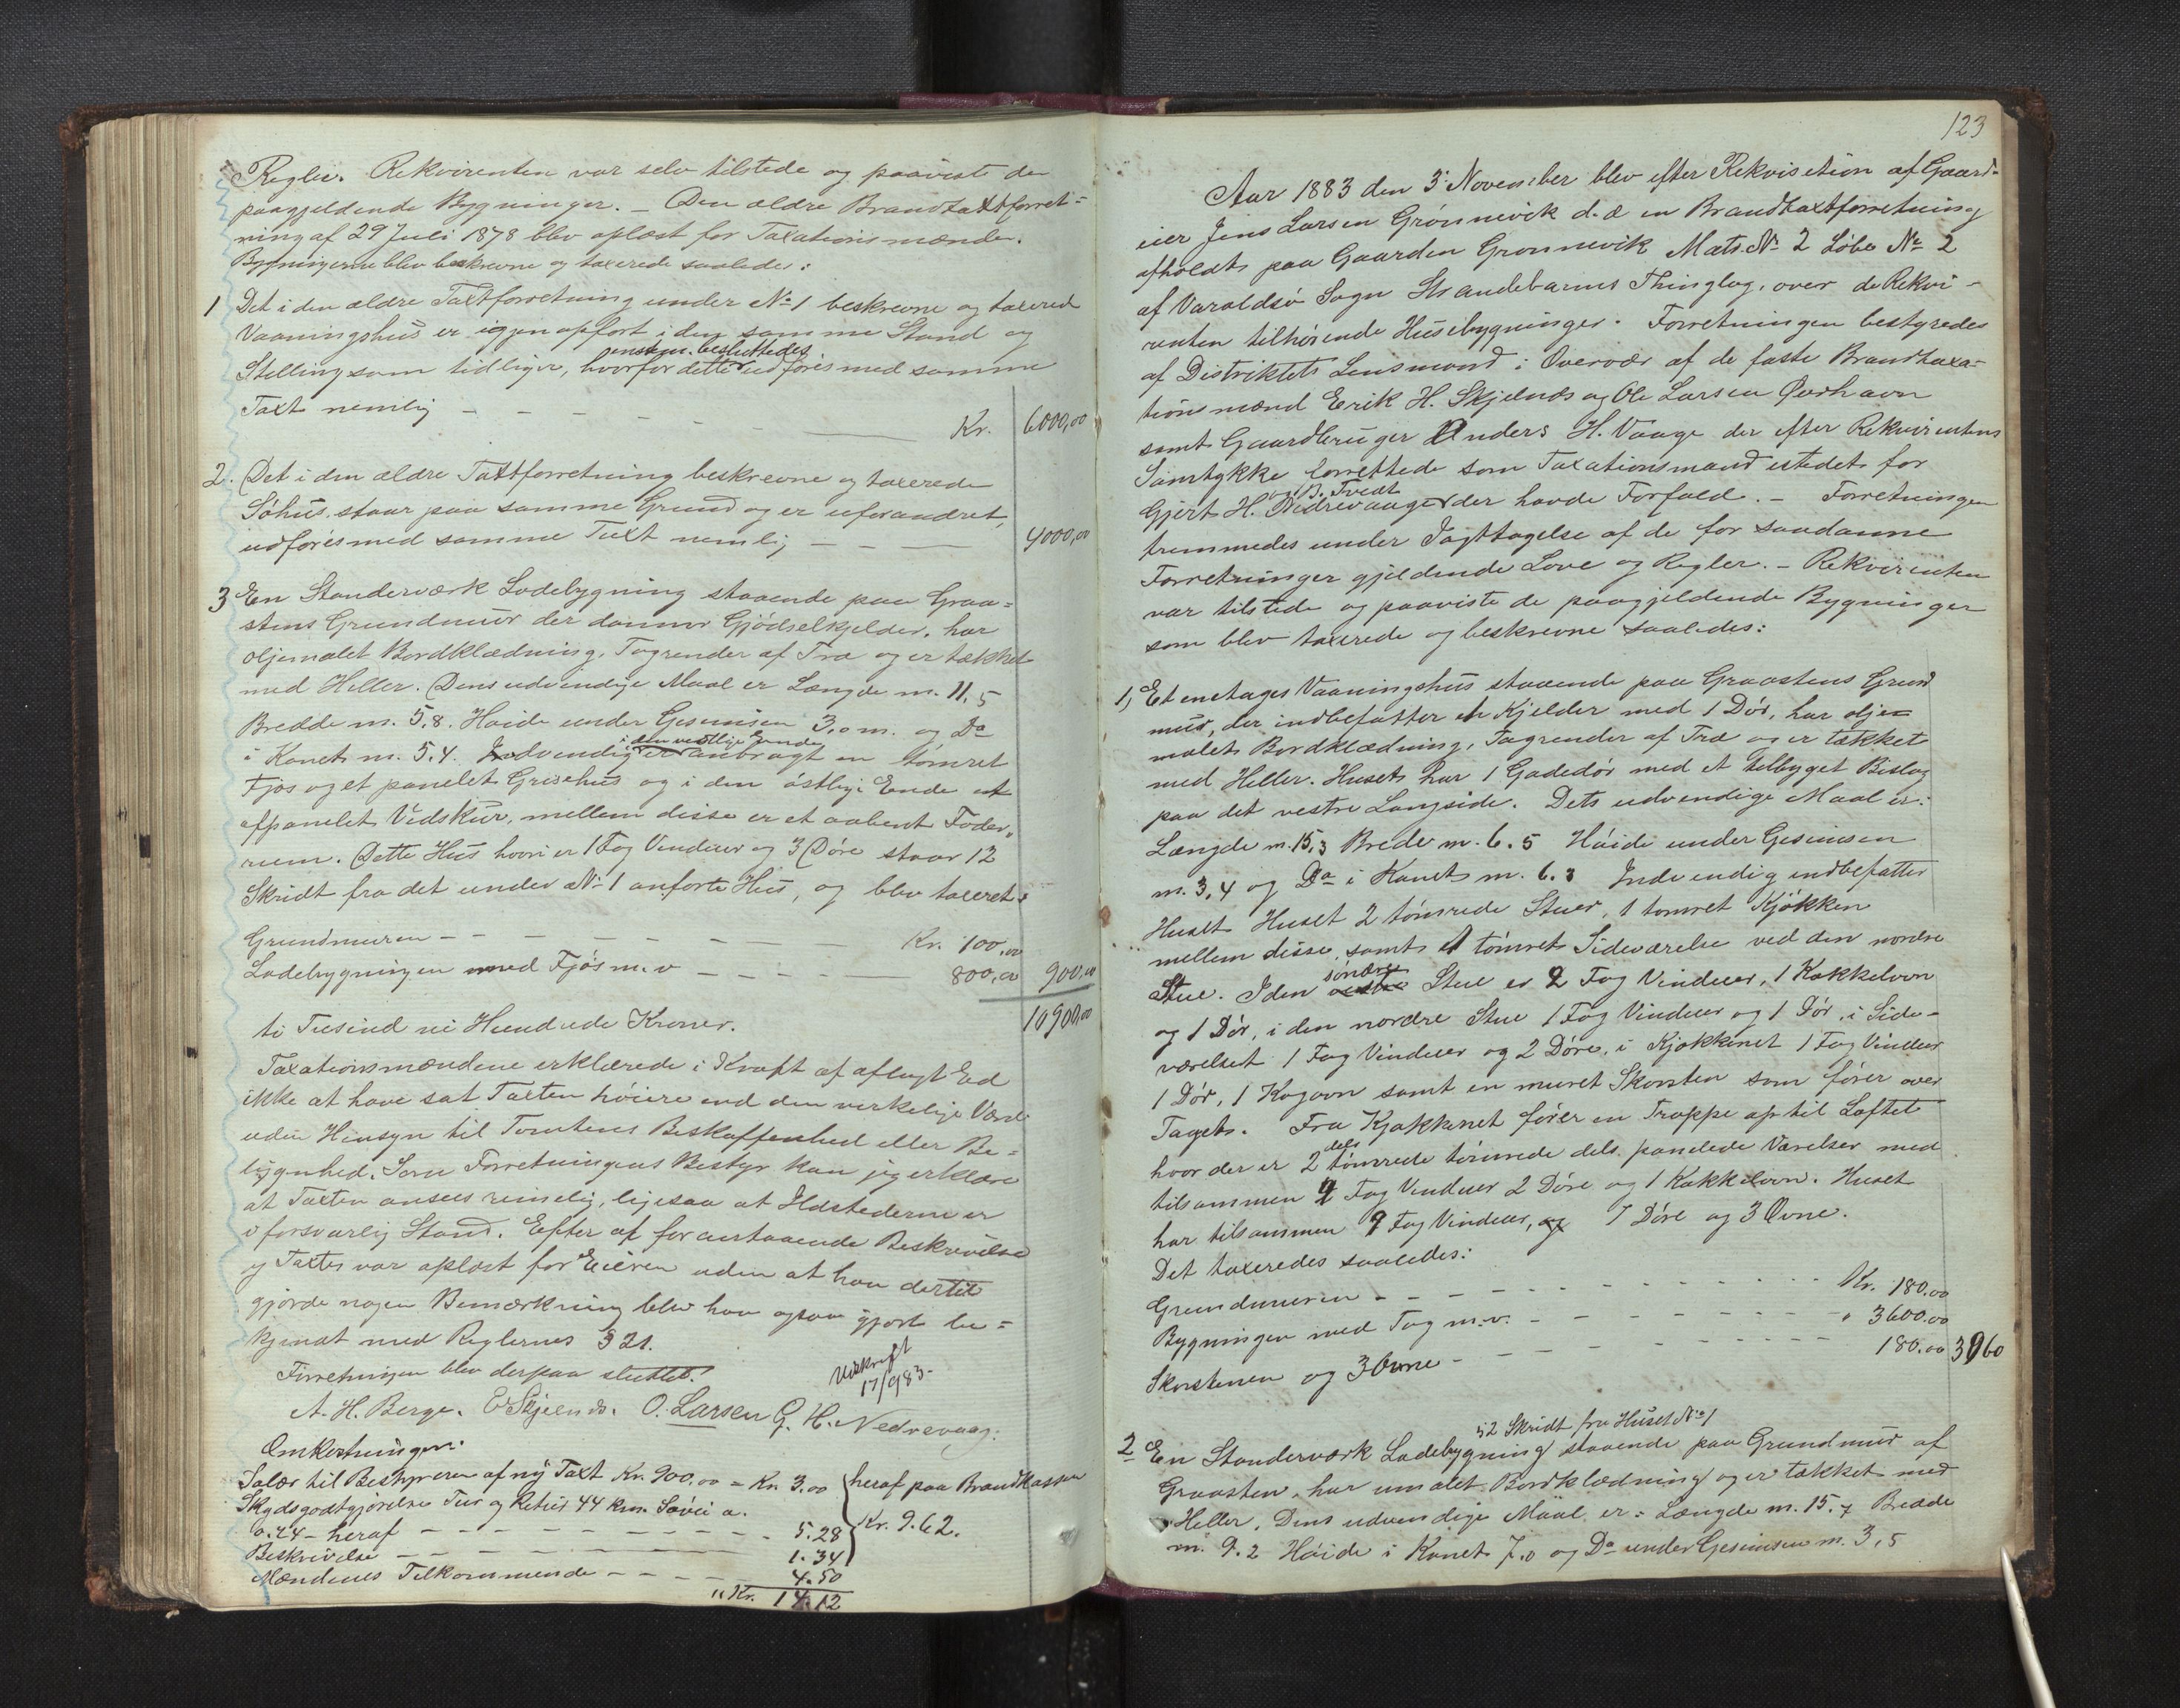 Regler. Rekvirenten var selv tilstede og paaviste de
paagjeldende Bygninger. – Den ældre Brandtaxtforret=
ning af 29 Juli 1878 blev oplæst for Taxationsmændene.
Bygningerne blev beskrevne og taxerede saaledes:
1 Det i den ældre Taxtforretning under No 1 beskrevne og taxerede
Vaaningshus er igjen opført i den samme Stand og
enstem. besluttedes
Stilling som tidligere, hvorfor dette udføres med samme
Taxt nemlig – – – – Kr. 6000,00
2. Det i den ældre Taxtforretning beskrevne og taxerede
Søhus staar paa samme Grund og er uforandret,
udføres med samme Taxt nemlig – – – 4000,00
3 En Standerværk Ladebygning staaende paa Graa=
stens Grundmur der danner Gjödselkjelder, har
oljemalet Bordklædning, Tagrender af Træ og er tækket
med Heller. Dens udvendige Maal er Længde m. 11,5
Bredde m. 5,8. Høide under Gesimsen 3,0 m. og Do
i den vestlige Ende
i Kanet m. 5,4. Indvendig er anbragt en tømret
Fjøs og et panelet Grisehus og i den østlige Ende et
afpanelet Vedskur, mellem disse er et aabent Foder,,
rum. Dette Hus hvori er 1 Fag Vinduer og 3 Døre staar 12
Skridt fra det under No 1 anførte Hus, og blev taxeret:
Grundmuren – – – – – Kr. 100,00
Ladebygningen med Fjøs m.v – – – – 800,00 900,00
ti Tusind ni Hundrede Kroner. 10900,00
Taxationsmændene erklærede i Kraft af aflagt Eed
ikke at have sat Taxten høiere end den virkelige Værdi
uden Hensyn til Tomtens Beskaffenhed eller Be=
liggenhed. Som Forretningens Bestyr. kan jeg erklære
at Taxten ansees rimelig, ligesaa at Ildstederne er
i forsvarlig Stand. Efter at foranstaaende Beskrivelse
og Taxter var oplæst for Eieren uden at han dertil
gjorde nogen Bemærkning blev han ogsaa gjort be=
kjendt med Reglernes § 21.
Forretningen blev derpaa sluttet.
Udskrift
17/9 83.
A. H. Berge. E Skjelnæs. O. Larsen G. H. Nedrevaag.
Omkostninger:
Salær til Bestyreren af ny Taxt Kr. 900,00 = Kr. 3.00 heraf paa Brandkassen
Skydsgodtgjørelse Tur og Retur 44 km. Søvei a.
0.24 – heraf – – – – – 5.28 Kr. 9.62.
Beskrivelse – – – – – 1.34
Mændenes Tilkommende – – – – 4.50
"Kr. 14.12
123
Aar 1883 den 3 November blev efter Rekvisition af Gaard-
eier Jens Larsen Grønnevik d.æ en Brandtaxtforretning
afholdt paa Gaarden Grønnevik Mats. No 2 Løbe No 2
af Varaldsø Sogn Strandebarms Thinglag, over de Rekvi-
renten tilhørende Husebygninger. Forretningen bestyredes
af Distriktets Lensmand i Overvær af de faste Brandtaxa-
tionsmænd Erik H. Skjelnæs og Ole Larsen Øverhavn
samt Gaardbruger Anders H. Vaage der efter Rekvirentens
Samtykke forrettede som Taxationsmand istedet for
og B. Tvedt
Gjert H. Nedrevaage der havde Forfald. – Forretningen
fremmedes under Iagttagelse af de for saadanne
Forretninger gjeldende Love og Regler. – Rekvirenten
var tilstede og paaviste de paagjeldende Bygninger
som blev taxerede og beskrevne saaledes:
1, Et enetages Vaaningshus staaende paa Graastens Grund
mur, der indbefatter en Kjelder med 1 Dør, har olje=
malet Bordklædning, Tagrender af Træ og er tækket
med Heller. Huset har 1 Gadedør med et tilbygget Bislag
paa det vestre Langside. Dets udvendige Maal er:
Længde m. 15,3 Brede m. 6.5 Høide under Gesimsen
m. 3,4 og Do i Kanet m. 6.3 Indvendig indbefatter
Huset Huset 2 tømrede Stuer, 1 tømret Kjøkken
mellem disse, samt 1 tømret Sideværelse ved den nordre
søndre
Stue. I den Stue er 2 Fag Vinduer, 1 Kakkelovn
og 1 Dør, i den nordre Stue 1 Fag Vinduer og 1 Dør, i Side-
værelset 1 Fag Vinduer og 2 Døre, i Kjøkkenet 1 Fag Vinduer
1 Dør, 1 Kogovn samt en muret Skorsten som fører over
Taget. Fra Kjøkkenet fører en Trappe op til Loftet
dels
hvor der er 2 tømrede tømrede dels panelede Værelser med
tilsammen 4 Fag Vinduer 2 Døre og 1 Kakkelovn. Huset
har tilsammen 9 Fag Vinduer, og 7 Døre og 3 Ovne.
Det taxeredes saaledes:
Grundmuren – – – – Kr. 180.00
Bygningen med Tag m.v. – – – " 3600.00
Skorstenen og 3 Ovne – – – 180.00 3960
52 Skridt fra Huset No 1
2 En Standerværk Ladebygning staaende paa Grundmur af
Graasten, har umalet Bordklædning og er tækket med
Heller. Dens udvendige Maal er: Længde m. 15.7 Bredde
m. 9.2 Høide i Kanet 7.0 og Do under Gesimsen m. 3,5